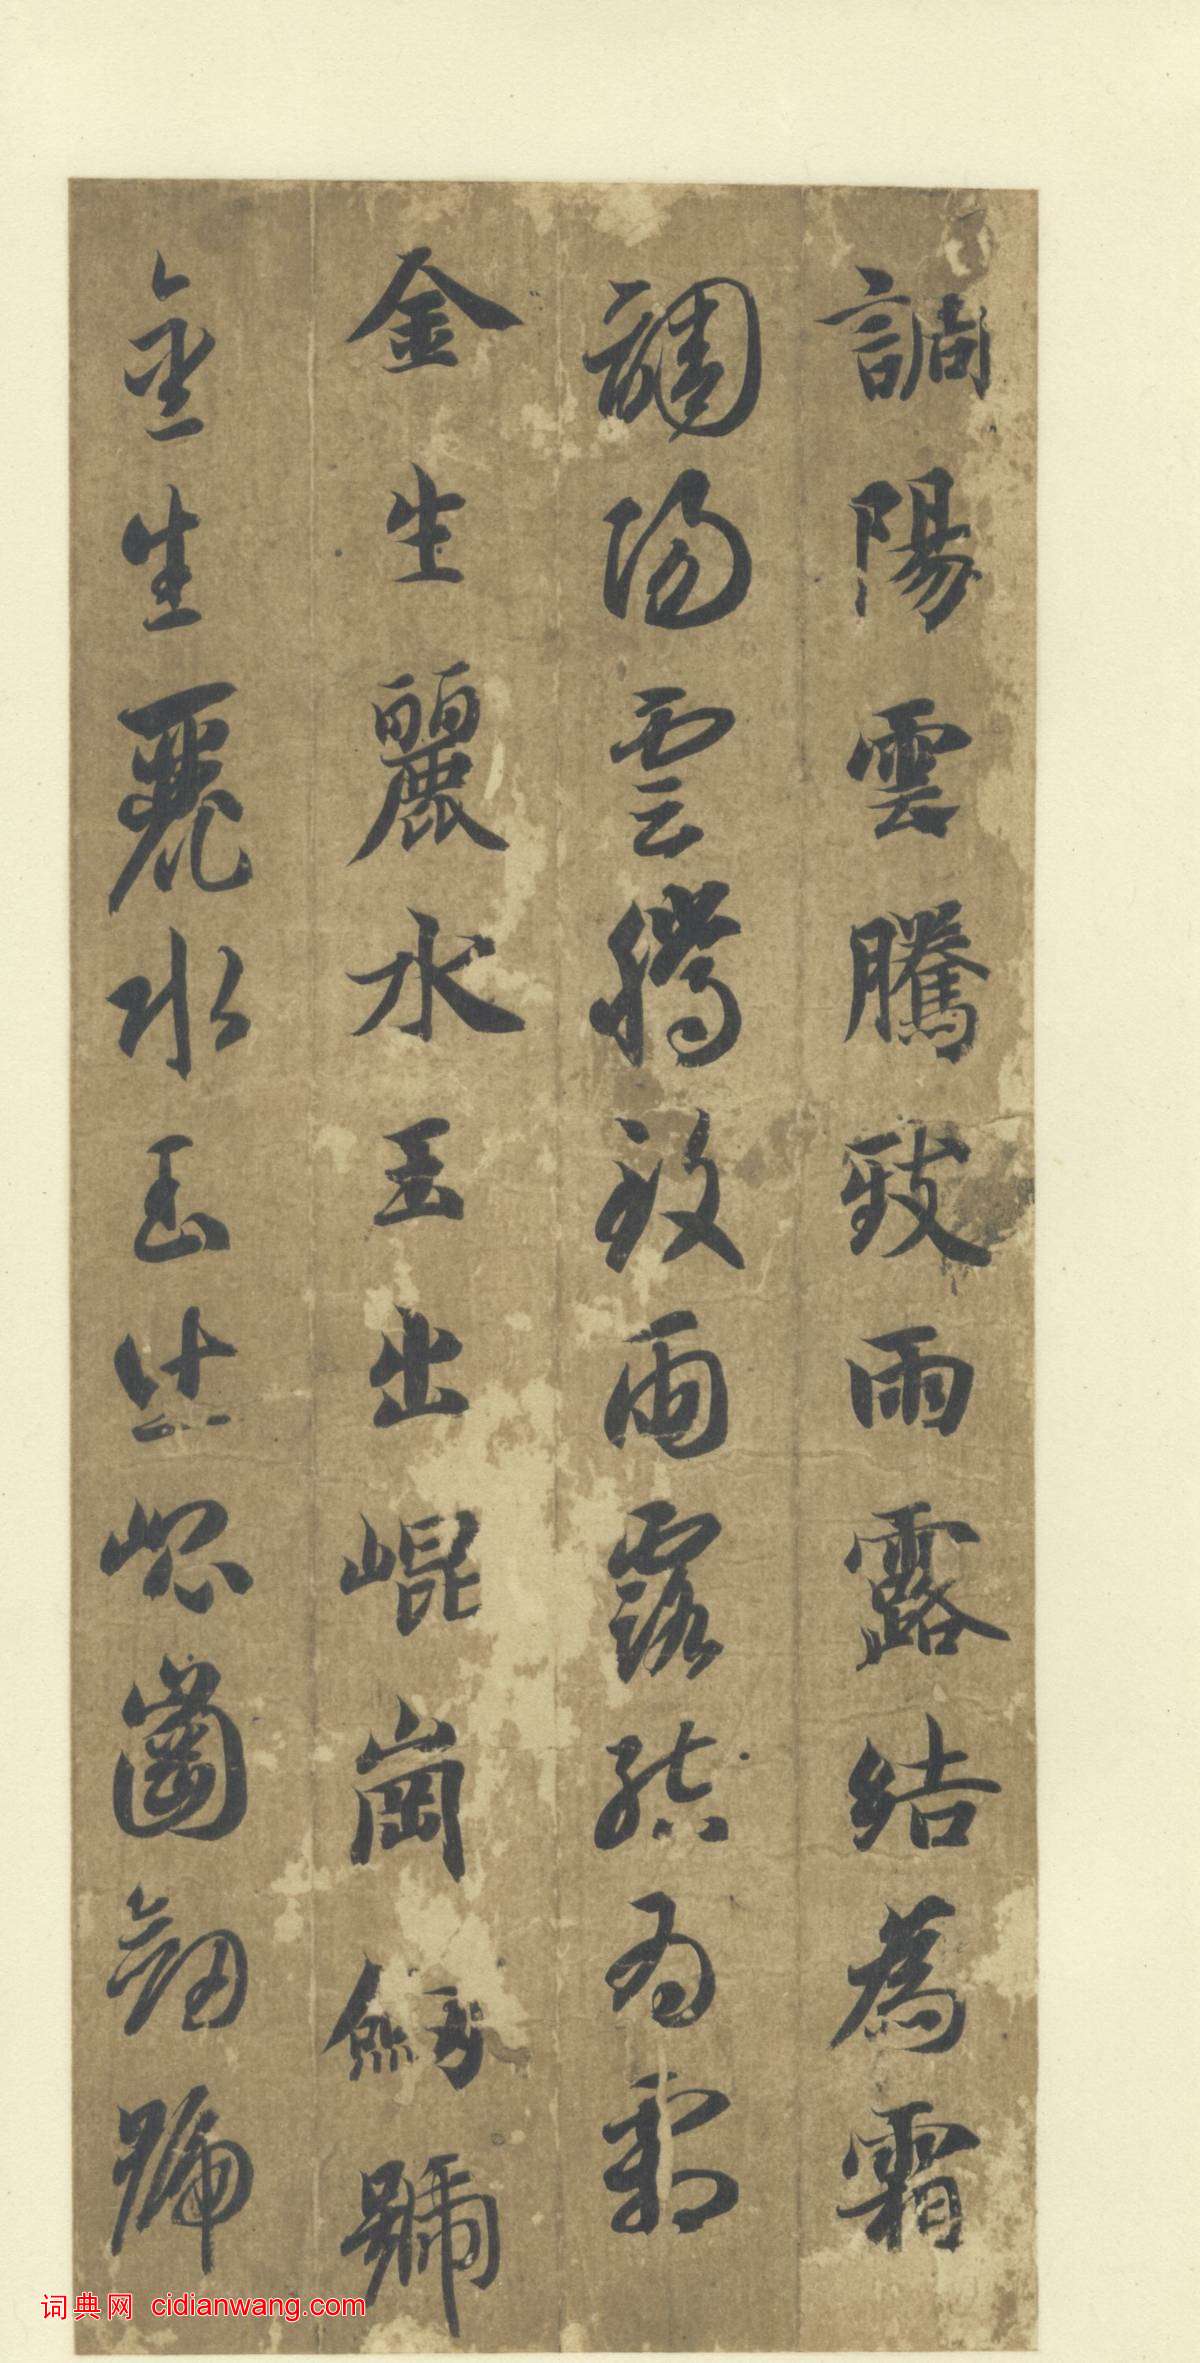 調陽雲騰致雨露結為霜
調陽雲騰致雨露結為霜
金生麗水玉出崐崗劔號
金生麗水玉出崐崗劔號
词典网 cidianwang.com